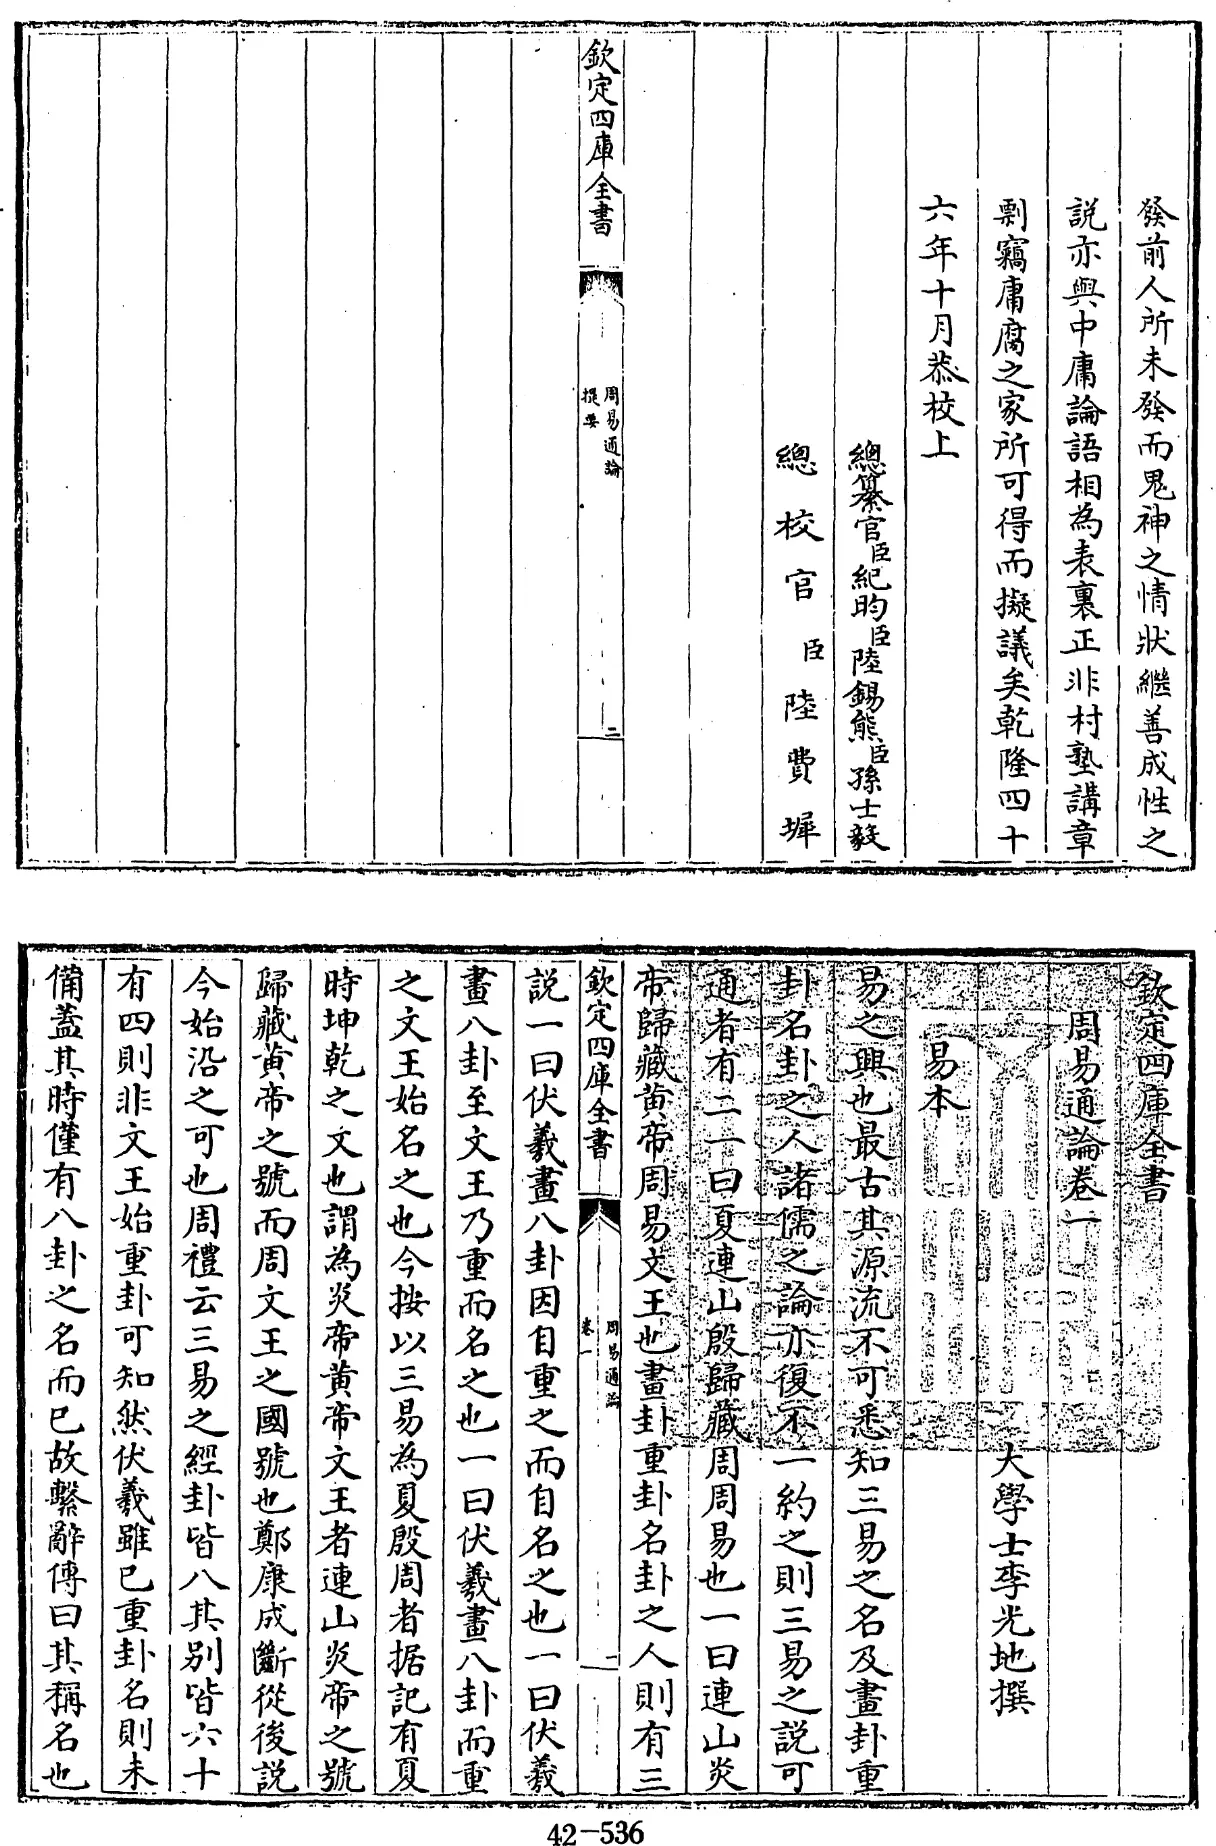 發前人所未發而鬼神之情狀繼善成性之
説亦與中庸論語相為表裏正非村塾講章
剽竊庸腐之家所可得而擬議矣乾隆四十
六年十月恭校上
總纂官臣紀昀臣陸錫熊臣孫士毅
總校官臣陸費墀
欽定四庫全書
周易通論
提要
二
欽定四庫全書
周易通論卷一
大學士李光地撰
易本
易之興也最古其源流不可悉知三易之名及畫卦重
卦名卦之人諸儒之論亦復不一約之則三易之説可
通者有二一曰夏連山殷歸藏周周易也一曰連山炎
帝歸藏黃帝周易文王也畫卦重卦名卦之人則有三
欽定四庫全書
周易通論
卷一
一
説一曰伏羲畫八卦因自重之而自名之也一曰伏羲
畫八卦至文王乃重而名之也一曰伏羲畫八卦而重
之文王始名之也今按以三易為夏殷周者据記有夏
時坤乾之文也謂為炎帝黃帝文王者連山炎帝之號
歸藏黃帝之號而周文王之國號也鄭康成斷從後説
今始沿之可也周禮云三易之經卦皆八其别皆六十
有四則非文王始重卦可知然伏羲雖已重卦名則未
備蓋其時僅有八卦之名而已故繫辭傳曰其稱名也
42-536